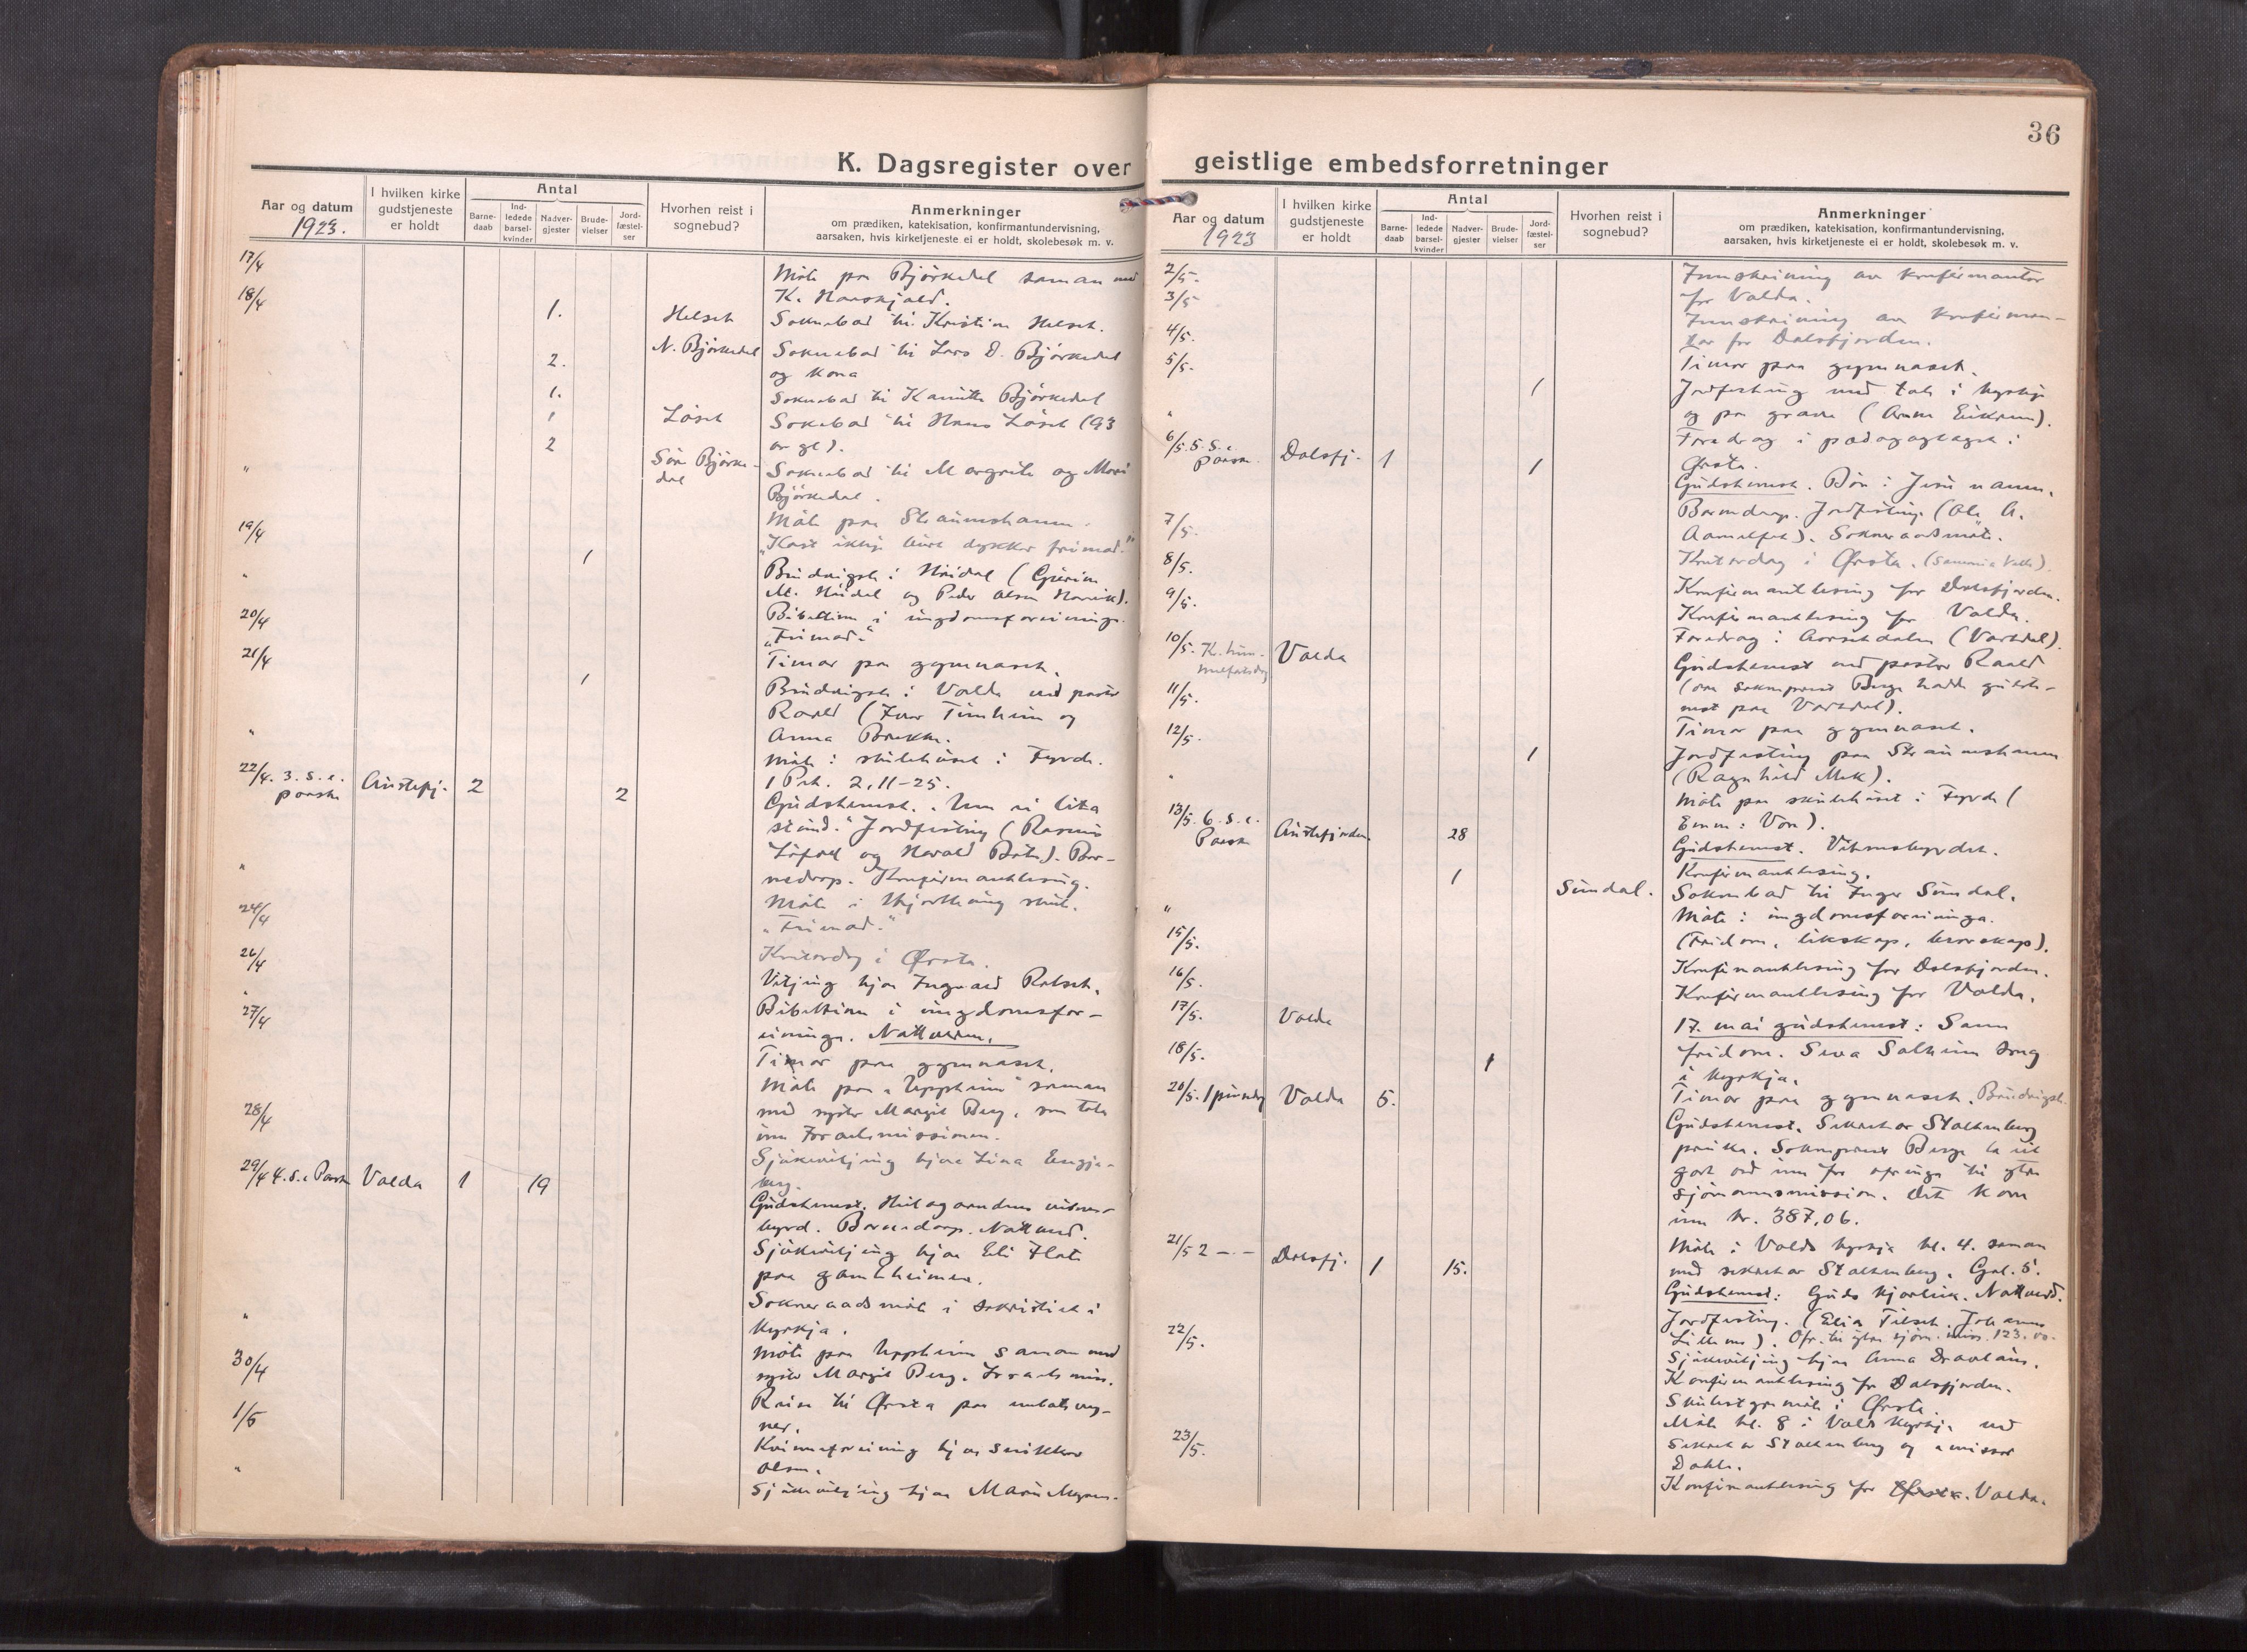 K. Dagsregister over
Aar og datum
1923.
I hvilken kirke
gudstjeneste
er holdt
Antal
Barne-
daab
Ind-
ledede
barsel-
kvinder
Nadver-
gjester
Brude-
vielser
Jord-
fæstel-
ser
Hvorhen reist i
sognebud?
Anmerkninger
om prædiken, katekisation, konfirmantundervisning,
aarsaken, hvis kirketjeneste ei er holdt, skolebesøk m. v.
17/4 Møte paa Bjørkedal saman med
K.
18/4 1. Helset Soknebod til Kristian Helset.
N. Bjørkedal 2. Soknebod til Lars D. Bjørkedal
og kona
1. Soknebod til Kamilla Bjørkedal
1 Løset Soknebod til Hans Løset (93
aar gl).
" 2 Søre Bjørke-
dal Soknebod til Margrete og Mari
Bjørkedal.
Møte paa Straumshamn.
19/4 "Kast ikkje burt dykkar frimod."
" 1 Brudvigsle i Hjidal (
og Peder Olsen
20/4 Bibeltime i ungdomsforeininga.
"Frimod."
21/4 Timar paa gymnaset.
1 Brudvigsle i Volda ved pastor
Raald (Ivar Timheim og
Anna Brekke.
" Møte i skulehuset i Fyrde.
1 Pet. 2, 11-25.
22/4. 3. s. e.
paaske Austefj. 2 2 Gudstenest. "Um ei lita
stund." Jordfesting (Rasmus
og Harald Bøle). Bor-
nedaap. Konfirmantlesing.
" Møte i skule.
"Frimod."
24/4 Kontordag i Ørsta.
26/4 Vitjing hjaa Ingvald Rotset.
" Bibeltime i ungdomsfor-
eininga. Nattverden.
27/4 Timar paa gymnaset.
Møte paa "Uppheim" saman
med syster Margit Berg, som tala
um Israelsmissionen.
28/4 Sjukevitjing hjaa Lina Engje-
berg.
29/4 4. s. e. Paaske Volda 1 19 Gudstenest. Heilagandens vitnes-
byrd. Bornedaap. Nattverd.
Sjukevitjing hjaa Eli Flate
paa gamleheimen.
Sokneraadsmøte i sakristiet i
kyrkja.
" Møte paa Uppheim saman med
syster Margit Berg. Israelsmiss.
30/4 Reise til Ørsta paa embetsveg-
ner.
1/5 Kvinneforeining hjaa snikkar
Olsen.
" Sjukevitjing hjaa Marie
36
geistlige embedsforretninger
Aar og datum
1923
I hvilken kirke
gudstjeneste
er holdt
Antal
Barne-
daab
Ind-
ledede
barsel-
kvinder
Nadver-
gjester
Brude-
vielser
Jord-
fæstel-
ser
Hvorhen reist i
sognebud?
Anmerkninger
om prædiken, katekisation, konfirmantundervisning,
aarsaken, hvis kirketjeneste ei er holdt, skolebesøk m. v.
2/5. Innskriving av konfirmantar
for Volda.
3/5 Innskriving av konfirman-
tar for Dalsfjorden.
4/5. Timar paa gymnaset.
5/5. 1 Jordfesting med tale i kyrkje
og paa grava (Anne Eikrem).
" Foredrag i pedagoglaget i
Ørsta.
6/5. 5. s. e.
paaske. Dalsfj. 1 1 Gudstenest. Bøn i Jesu namn.
Barnedaap. Jordfesting (Ole A.
Aamelfot). Sokneraadsmøte.
7/5. Kontordag i Ørsta.
8/5. Konfirmantlesing for Dalsfjorden.
9/5. Konfirmantlesing for Volda.
Foredrag i Aarsetdalen (Vartdal).
10/5. Kr. him-
melfartsdag Volda Gudstenest ved pastor Raald
(daa sokneprest Berge hadde gudste-
nest paa Vartdal).
11/5. Timar paa gymnaset.
12/5. 1 Jordfesting paa Straumshamn
(Ragnhild Mek).
" Møte paa skulehuset i Fyrde (
Emne: Von).
13/5. 6. s. e.
Paaske Austefjorden. 28 Gudstenest. Vitnesbyrdet.
Konfirmantlesing.
1 Sundal. Soknebod til Inger Sundal.
" Møte i ungdomsforeininga.
(Fridom, likskap, brorskap).
15/5. Konfirmantlesing for Dalsfjorden.
16/5. Konfirmantlesing for Volda.
17/5. Volda 17. mai gudstenest: Sann
fridom. Svea Solheim song
i kyrkja.
18/5. 1 Timar paa gymnaset. Brudvigsle.
20/5. 1 pinsedag Volda 5. Gudstenest. Sekretær Stoltenberg
preika. Sokneprest Berge la eit
godt ord inn for ofringa til ytre
sjømannsmission. Det kom
inn kr. 387,06.
Møte i Volda kyrkje kl. 4. saman
med sekretær Stoltenberg. Gal. 5.
21/5 2 - . - Dalsfj. 1 15. Gudstenest: Guds kjærleik. Nattverd.
Jordfesting. (
). Ofr. til ytre sjøm. miss. 123.00.
22/5. Sjukevitjing hjaa Anna Dravlaus.
Konfirmantlesing for Dalsfjorden.
Skulestyremøte i Ørsta.
Møte kl. 8 i Volda kyrkje med
sekretær Stoltenberg og emissær
Dahle.
23/5. Konfirmantlesing for Ørsta. Volda.